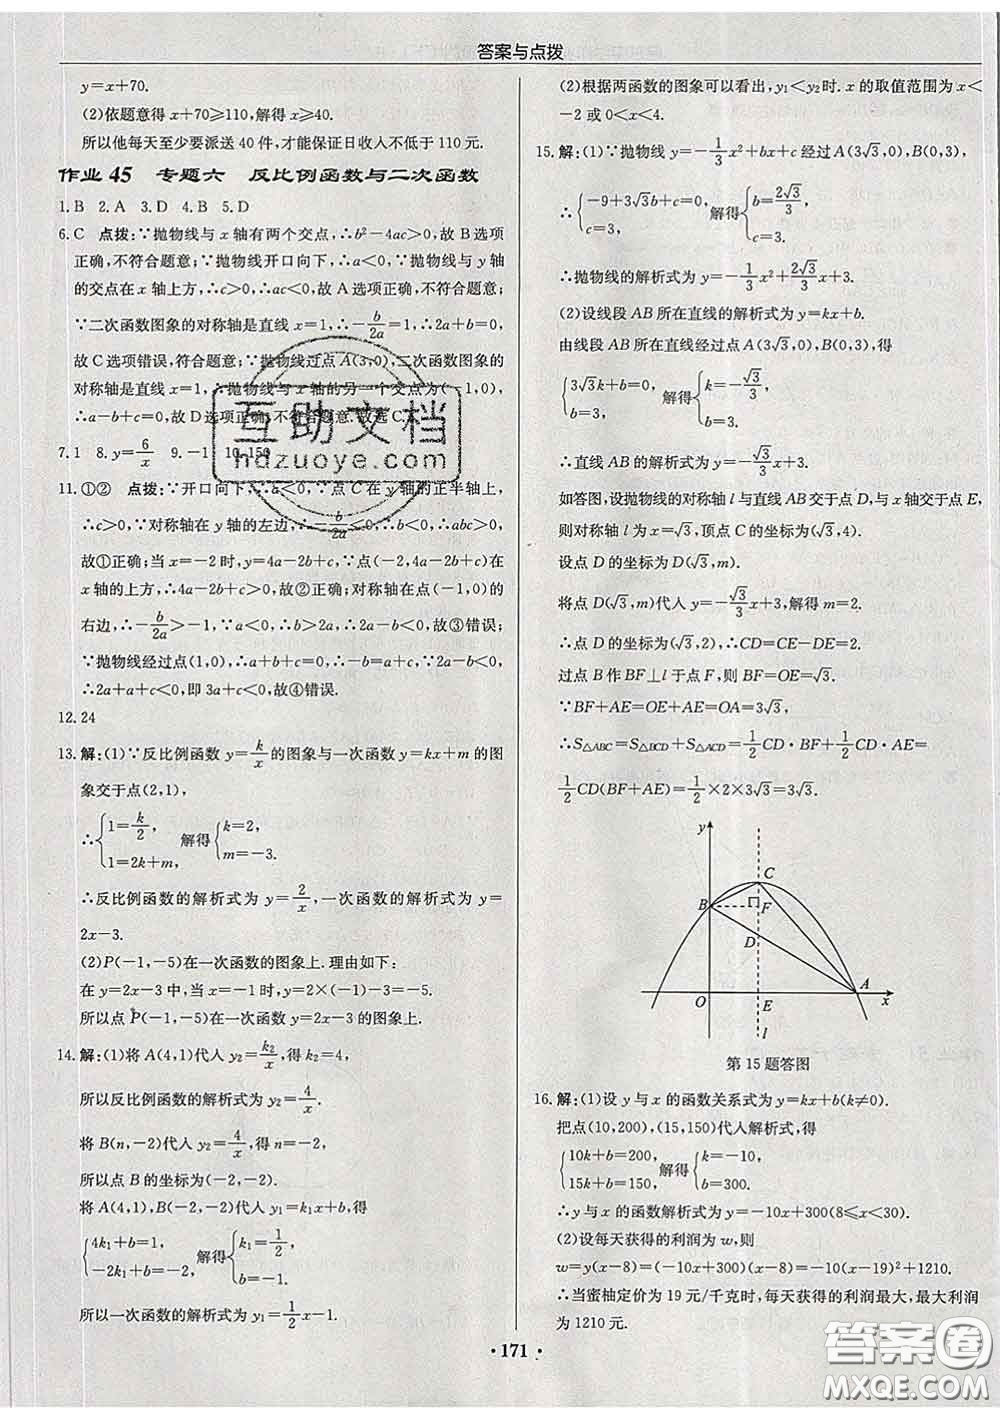 答案与点拨
y=x+70.
(2)依题意得 x+70≥110,解得 x≥40.
所以他每天至少要派送 40 件,才能保证日收入不低于 110 元.
作业 45 专题六 反比例函数与二次函数
1.B 2.A 3.D 4.B 5.D
6.C 点拨:∵抛物线与 x 轴有两个交点,∴b²-4ac>0,故 B 选项
正确,不符合题意;∵抛物线开口向下,∴a<0,∵抛物线与 y 轴
的交点在 x 轴上方,∴c>0,∴ac<0,故 A 选项正确,不符合题意;
∵二次函数图象的对称轴是直线 x=1,∴-b/2a=1,∴2a+b=0,
故 C 选项错误,符合题意;∵抛物线过点 A(3,0),二次函数图象的
对称轴是直线 x=1,∴抛物线与 x 轴的另一个交点为(-1,0),
∴a-b+c=0,故 D 选项正确,不符合题意.故选 C.
7.1 8.y=6/x 9.-1 10.150
11.①② 点拨:∵开口向下,∴a<0,∵点 C 在 y 轴的正半轴上,
∴c>0,∵对称轴在 y 轴的左边,∴-b/2a<0,∴b<0,∴abc>0,
故①正确;当 x=-2 时,y=4a-2b+c,∵点(-2,4a-2b+c)在
x 轴的上方,∴4a-2b+c>0,故②正确;∵对称轴在点(-1,0)的
右边,∴-b/2a>-1,∵a<0,∴b>2a,∴2a-b<0,故③错误;
∵抛物线经过点(1,0),∴a+b+c=0,∴b=-a-c,∵2a-b<0,
∴2a+a+c<0,即 3a+c<0,故④错误.
12.24
13.解:(1)∵反比例函数 y=k/x的图象与一次函数 y=kx+m 的图
象交于点(2,1),
∴{1=k/2, 1=2k+m, 解得{k=2, m=-3.
∴反比例函数的解析式为 y=2/x,一次函数的解析式为 y=
2x-3.
(2)P(-1,-5)在一次函数的图象上.理由如下:
在 y=2x-3 中,当 x=-1 时,y=2×(-1)-3=-5.
所以点 P(-1,-5)在一次函数 y=2x-3 的图象上.
14.解:(1)将 A(4,1)代人 y₂=k₂/x,得 k₂=4,
所以反比例函数的解析式为 y₂=4/x.
将 B(n,-2)代人 y₂=4/x,得 n=-2,
所以点 B 的坐标为(-2,-2).
将 A(4,1),B(-2,-2)代人 y₁=k₁x+b,得
{4k₁+b=1, -2k₁+b=-2, 解得{k₁=1/2, b=-1.
所以一次函数的解析式为 y₁=1/2x-1.
(2)根据两函数的图象可以看出,y₁<y₂时.x 的取值范围为 x<
-2 或 0<x<4.
15.解:(1)∵抛物线 y=-1/3x²+bx+c 经过 A(3√3,0),B(0,3),
∴{-9+3√3b+c=0, c=3, 解得{b=2√3/3, c=3.
∴抛物线的解析式为 y=-1/3x²+2√3/3x+3.
(2)设线段 AB 所在直线的解析式为 y=kx+b.
由线段 AB 所在直线经过点 A(3√3,0),B(0,3),得
{3√3k+b=0, b=3, 解得{k=-√3/3, b=3.
∴直线 AB 的解析式为 y=-√3/3x+3.
如答图,设抛物线的对称轴 l 与直线 AB 交于点 D,与 x 轴交于点 E,
则对称轴 l 为 x=√3,顶点 C 的坐标为(√3,4).
设点 D 的坐标为 D(√3,m).
将点 D(√3,m)代人 y=-√3/3x+3,解得 m=2.
∴点 D 的坐标为(√3,2),∴CD=CE-DE=2.
过点 B 作 BF⊥l 于点 F,则 BF=OE=√3.
∵BF+AE=OE+AE=OA=3√3,
∴S△ABC=S△BCD+S△ACD=1/2CD·BF+1/2CD·AE=
1/2CD(BF+AE)=1/2×2×3√3=3√3.
y
C
B
F
D
O
E
A
x
l
第 15 题答图
16.解:(1)设 y 与 x 的函数关系式为 y=kx+b(k≠0).
把点(10,200),(15,150)代人解析式,得
{10k+b=200, 15k+b=150, 解得{k=-10, b=300.
∴y 与 x 的函数解析式为 y=-10x+300(8≤x<30).
(2)设每天获得的利润为 w,则
w=y(x-8)=(-10x+300)(x-8)=-10(x-19)²+1210.
∴当蜜柚定价为 19 元/千克时,每天获得的利润最大,最大利润
为 1210 元.
·171·
互助文档
hdzuoye.com
答案圈
MXQE.COM